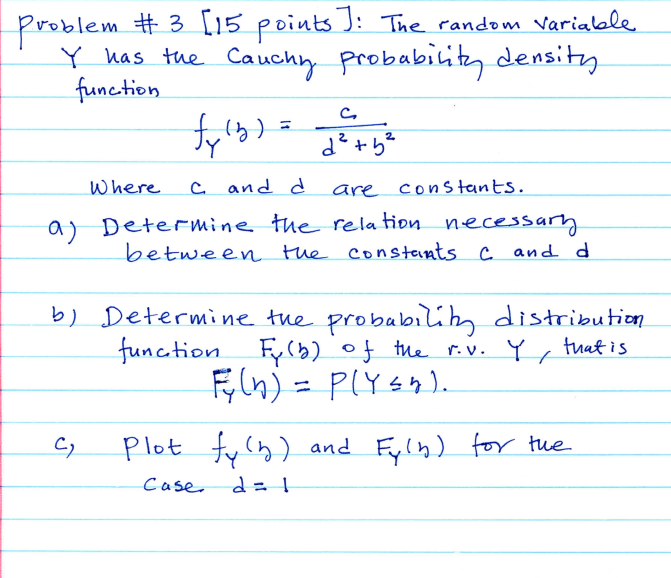 Problem # 3 [15 points]: The random variable
Y has the Cauchy probability density
function
f_Y(y) = c / (d² + y²)
Where c and d are constants.
a) Determine the relation necessary
between the constants c and d
b) Determine the probability distribution
function F_Y(y) of the r.v. Y, that is
F_Y(y) = P(Y ≤ y).
c) Plot f_Y(y) and F_Y(y) for the
case d = 1